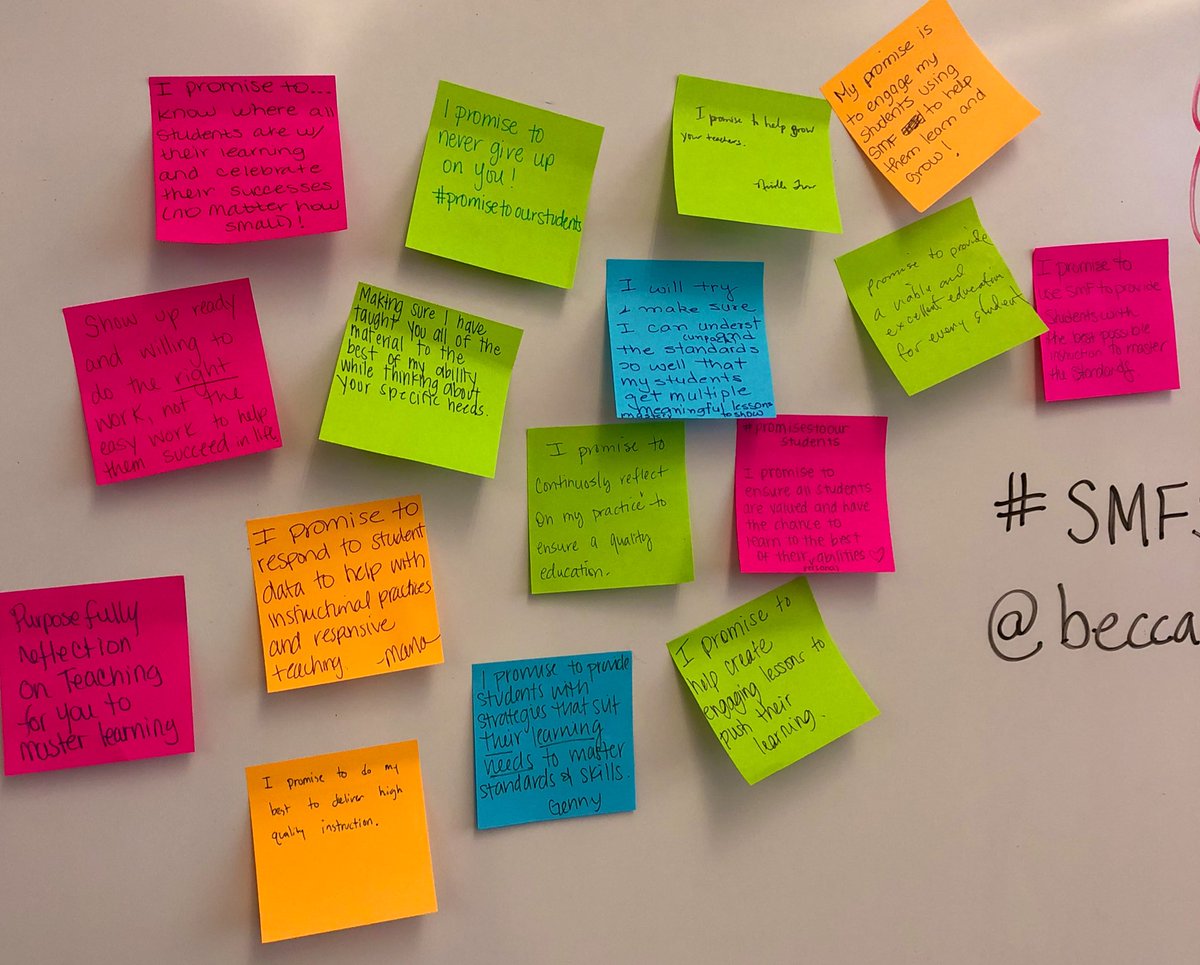 I promise to...
know where all
students are w/
their learning
and celebrate
their successes
(no matter how
small)!
I promise to
never give up
on you!
#promisetoourstudents
I promise to help grow
your teachers.
My promise is
to engage my
students using
SMF to help
them learn and
grow!
promise to provide
a viable and
excellent education
for every student
I promise to
use SMF to provide
students with
the best possible
instruction to master
the Standards
Show up ready
and willing to
do the right
work, not the
easy work to help
them succeed in life
Making sure I have
taught you all of the
material to the
best of my ability
while thinking about
your specific needs.
I will try
& make sure
I can underst
and
the standards
so well that
my students
get multiple
meaningful lessons
to show
mastery
I promise to
continuously reflect
on my practice to
ensure a quality
education.
#promisestoour
students
I promise to
ensure all students
are valued and have
the chance to
learn to the best
of their abilities
I promise to
respond to student
data to help with
instructional practices
and responsive
teaching
Purposefully
reflection
on Teaching
for you to
master learning
I promise to provide
students with
strategies that suit
their learning
needs to master
standards & skills.
Genny
I promise to
help create
engaging lessons to
push their
learning.
I promise to do my
best to deliver high
quality instruction.
#SMF
@becca